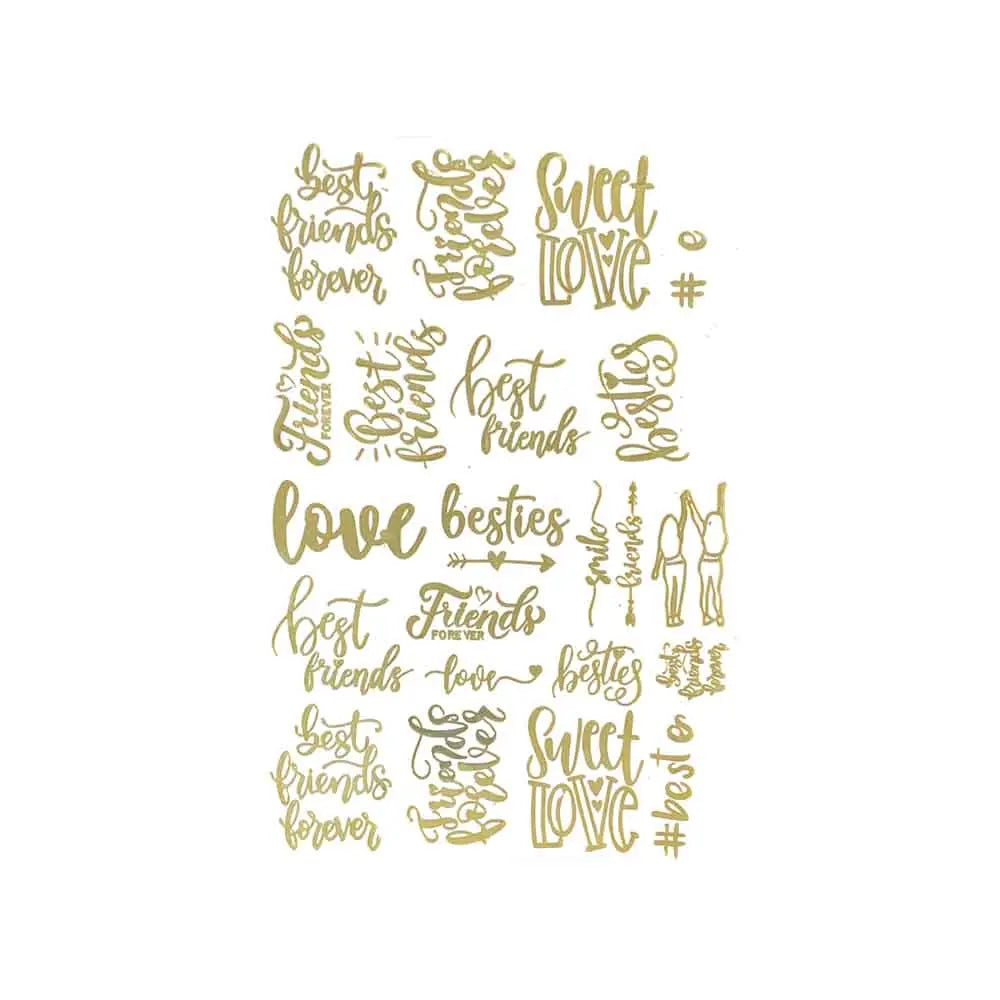 best
friends
forever
friends
forever
Sweet
LOVE
# e
Friends
FOREVER
Best
friends
best
friends
besties
love
besties
smile
friends
best
friends
Friends
FOREVER
love
besties
best
friends
forever
best
friends
forever
friends
forever
Sweet
LOVE
#best e